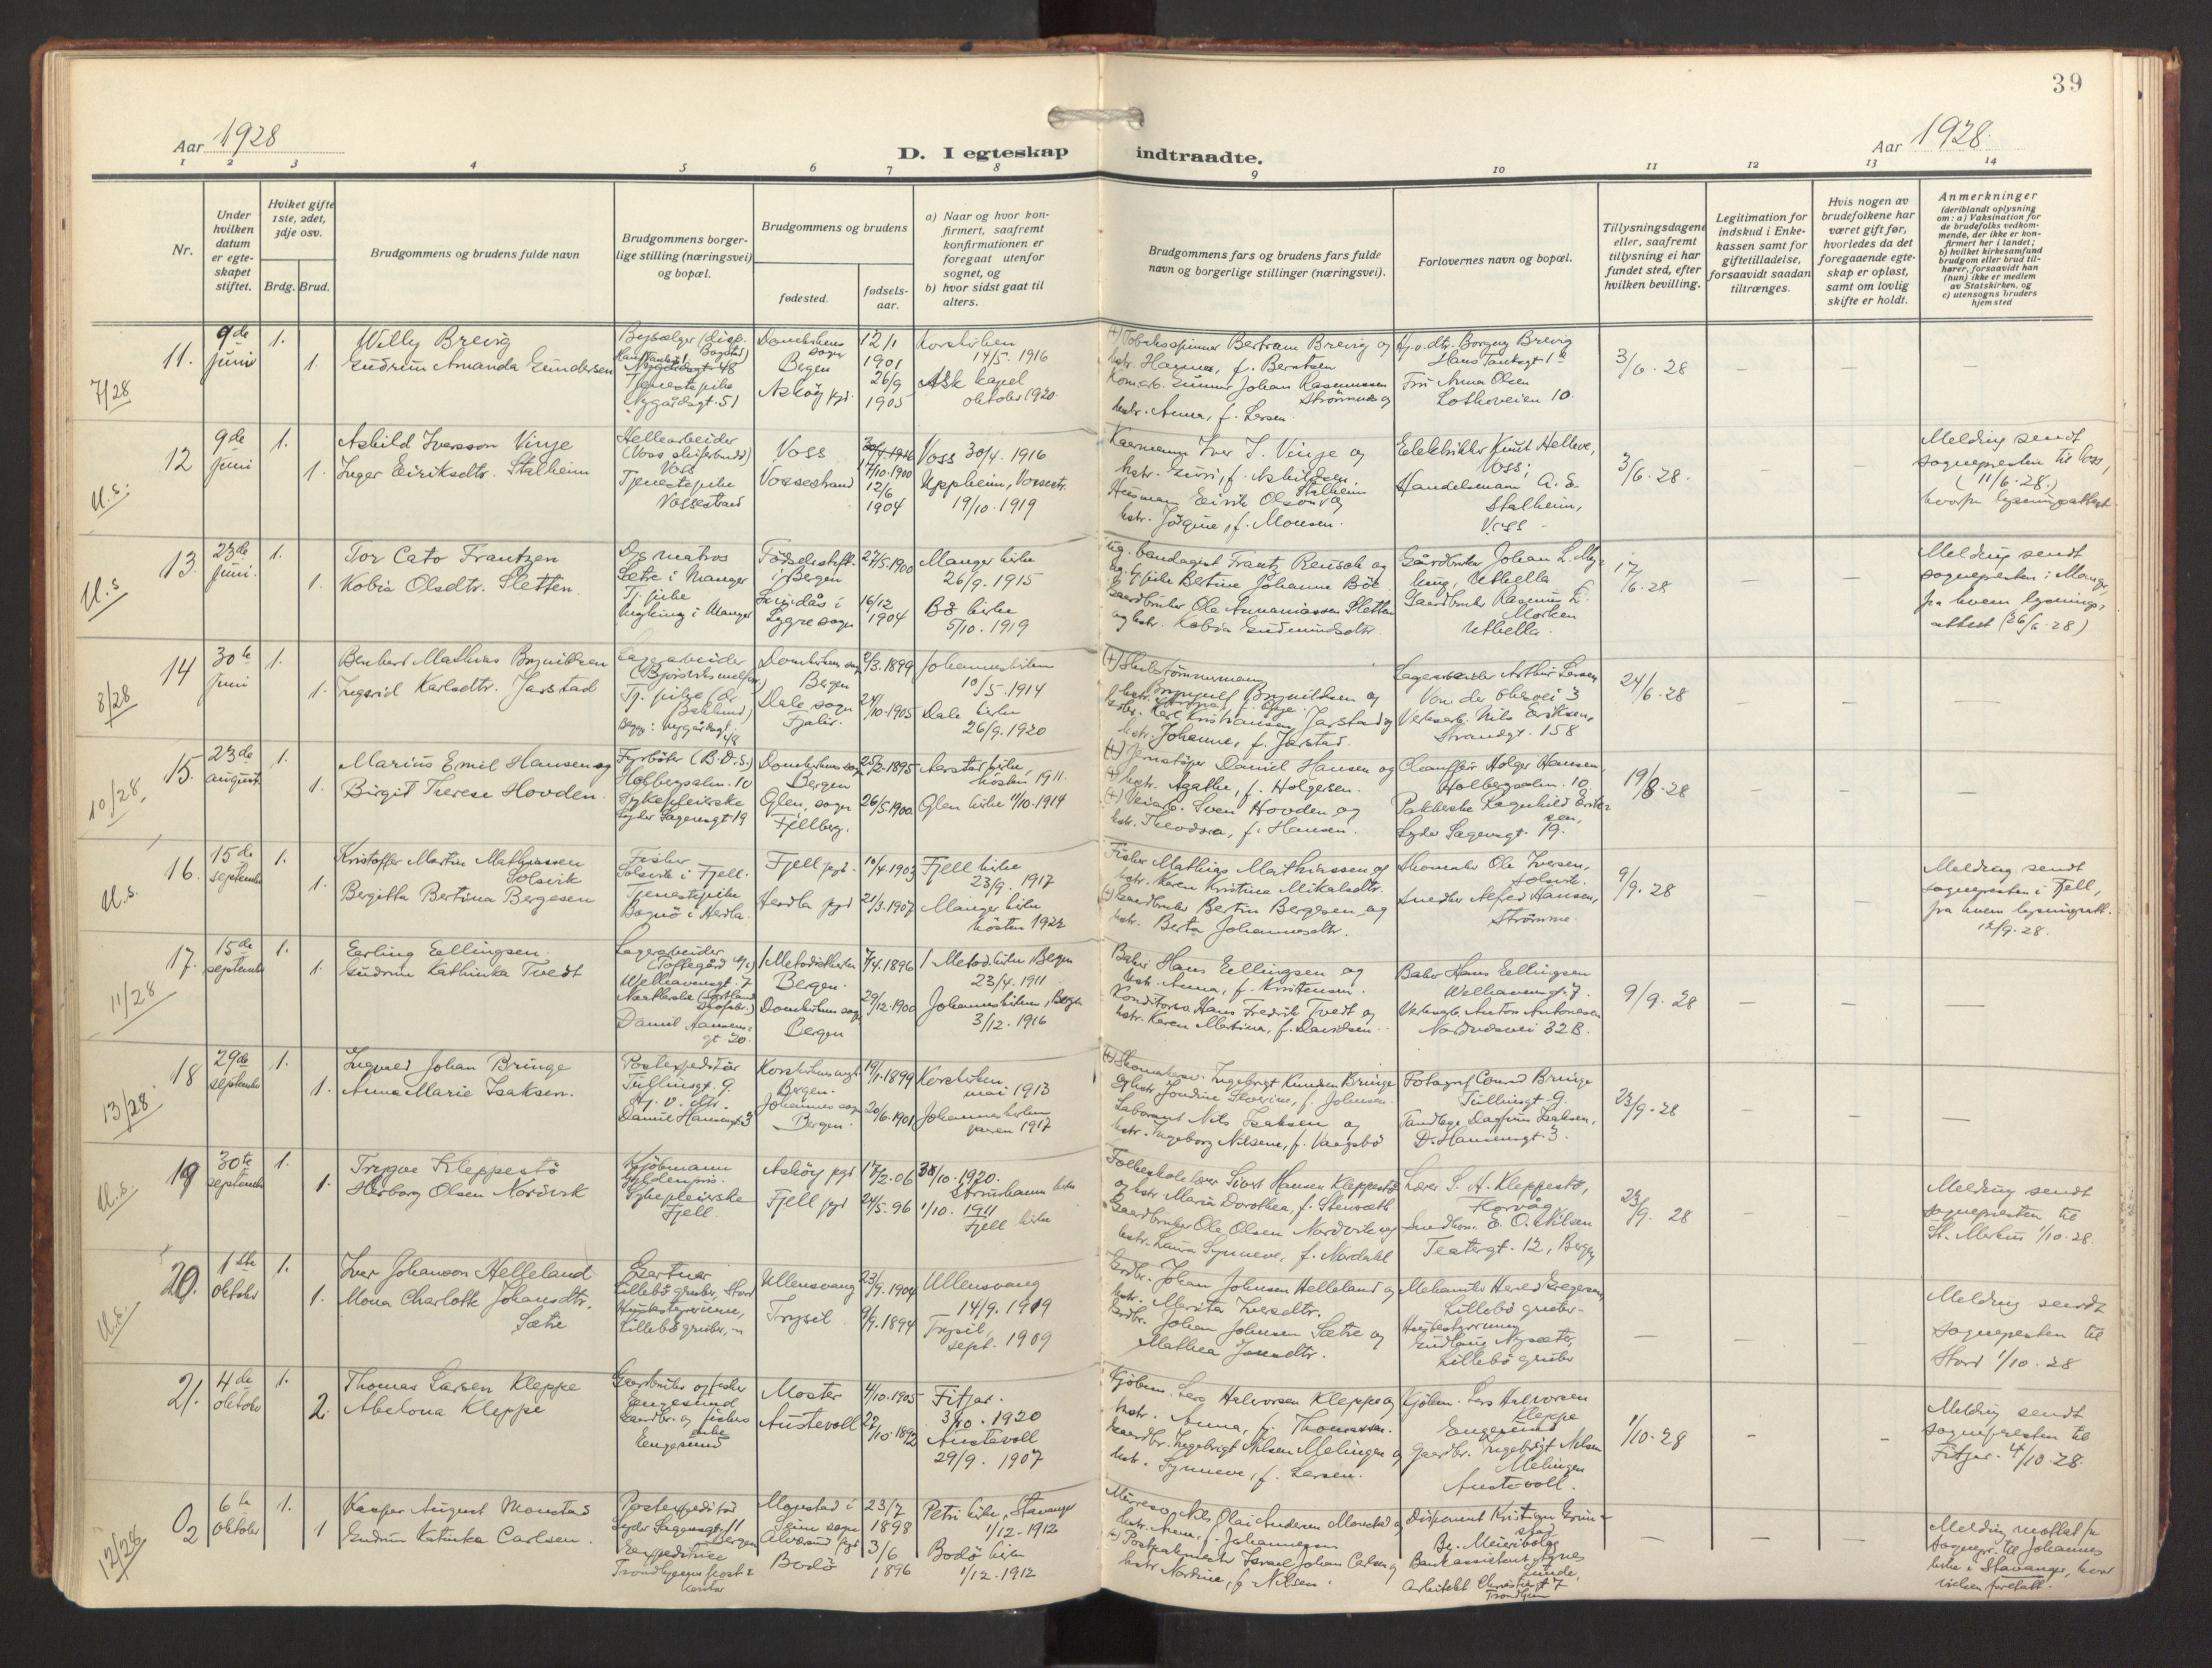 39
Aar 1928
D. I egteskap indtraadte.
Aar 1928.
1 2 3 4 5 6 7 8 9 10 11 12 13 14
Nr.
Under hvilken datum er egteskapet stiftet.
Hviket gifte 1ste, 2det, 3dje osv.
Brdg. Brud.
Brudgommens og brudens fulde navn
Brudgommens borgerlige stilling (næringsvei) og bopæl.
Brudgommens og brudens
fødested.
fødselsaar.
a) Naar og hvor konfirmert, saafremt konfirmationen er foregaat utenfor sognet, og
b) hvor sidst gaat til alters.
Brudgommens fars og brudens fars fulde navn og borgerlige stillinger (næringsvei).
Forlovernes navn og bopæl.
Tillysningsdagene eller, saafremt tillysning ei har fundet sted, efter hvilken bevilling.
Legitimation for indskud i Enkekassen samt for giftetilladelse, forsaavidt saadan tiltrænges.
Hvis nogen av brudefolkene har været gift før, hvorledes da det foregaaende egteskap er opløst, samt om lovlig skifte er holdt.
Anmerkninger
(deriblandt oplysning om: a) Vaksination for de brudefolks vedkommende, der ikke er konfirmert her i landet; b) hvilket kirkesamfund brudgom eller brud tilhører, forsaavidt han (hun) ikke er medlem av Statskirken, og c) utensogns bruders hjemsted
11. 7/28
9de juni
1. Willy Brevig
1. Gudrun Amanda Gundersen
Tjenestepike
Nygårdsgt. 51
Domkirkens sogn Bergen
Askøy pgd.
12/1 1901
26/9 1905
Korskirken 14/5. 1916
Ask kapel oktober 1920.
Bertram Brevig og
hstr. Hagna, f. Berntsen
Johan Rasmussen Strømsnes og
hstr. Anna, f. Larsen.
Hj.v. dtr. Borgny Brevig
Fru Anna Olsen
Lotheveien 10.
3/6. 28
12 U.s.
9de juni
1. Askild Iversson Vinje
1. Inger Eiriksdtr. Stalheim
Hellearbeider
Voss
Tjenestepike
Vossestrand
Voss
Vossestrand
17/10. 1900
12/6 1904
Voss 30/4. 1916
Oppheim, Vossestr.
19/10. 1919
Kaarmann Iver I. Vinje og
hstr. Guri, f. Askildsen
Husmann Eirik Olson Stalheim og
hstr. Jørgine, f. Monsen.
Elektriker Knut Helleve,
Voss;
Handelsmann A. E.
Stalheim,
Voss
3/6. 28.
Melding sendt
sognepresten til Voss,
(11/6. 28.)
hvorfra lysningsattest
13. U.s
23de juni.
1. Tor Cato Frantzen
1. Kobia Olsdtr. Sletten.
Dgs. matros
Sætre i Manger
Tj. pike
i Manger
Fødselsstift. i Bergen
Lindås i Lygre sogn
27/5. 1900
16/12 1904
Manger kirke
26/9. 1915
Bø kirke
5/10. 1919
Ug. bandagist Frantz Rensch og
ug. tj. pike Bertine Johanne Bøe
Gaardbruker Ole Annaniassen Sletten
og hstr. Kobia Gudmundsdtr.
Gårdbruker Johan L.
Uthella
Gaardbruker Rasmus L.
Morken
Uthella.
17/6. 28
Melding sendt
sognepresten i Manger,
fra hvem lysningsattest (26/6. 28)
14 8/28
30te juni
1. Bernhard Mathias Brynildsen
1. Ingerid Karlsdtr. Jarstad
Lagerarbeider
Domkirkens sogn Bergen
Dale sogn Fjaler.
/3. 1899
24/10. 1905
Johanneskirken
10/5. 1914
Dale kirke
26/9. 1920
(+) Skibstømmermann
Brynjulf Brynildsen og
Karl Kristiansen Jarstad og
hstr. Johanne, f. Jarstad.
Lagerarbeider Arthur Larsen
Von der Lippesvei 3
Verksarb. Nils Eriksen,
Strandgt. 158
24/6. 28
15. 10/28
23de august
1. Marius Emil Hansen og
1. Birgit Therese Hovden.
Fyrbøter (B.D.S.)
Holbergsalm. 10
Sykepleierske
Lyder Sagensgt 19
Domkirkens sogn Bergen
Ølen, sogn Fjellberg.
25/2. 1895
26/5. 1900.
Aarstad kirke,
høsten 1911.
Ølen kirke 11/10. 1914
(+) Jernstøper Daniel Hansen og
(+) hstr. Agathe, f. Holgersen.
(+) Veiarb. Sven Hovden og
hstr. Theodora, f. Hansen.
Chauffør Holger Hansen,
Holbergsalm. 10,
Pakkerske Ragnhild Eriksen,
Lyder Sagensgt. 19.
19/8. 28
16. U.s.
15de september
1. Kristoffer Martin Mathiassen
Solsvik
1. Bergitta Bertina Bergesen
Fisker
Solsvik i Fjell.
Tjenestepike
Bognø i Herdla.
Fjell pgd.
Herdla pgd
10/4. 1903
21/3. 1907
Fjell kirke
23/9. 1917
Manger kirke
høsten 1922
Fisker Mathias Mathiassen og
hstr. Karen Kristina Mikalsdtr.
(+) Gaardbruker Bertin Bergesen og
hstr. Berta Johannesdtr.
Skomaker Ole Iversen,
Solsvik.
Snedker Alfred Hansen,
Strømme.
9/9. 28
Melding sendt
sognepresten i Fjell,
fra hvem lysningsatt.
12/9. 28.
17. 11/28
15de september
1. Erling Ellingsen.
1. Gudrun Kathinka Tvedt
Lagerarbeider
Welhavensgt. 7
Daniel Hansensgt. 20.
Metodistkirken Bergen.
Domkirkens sogn Bergen
7/4. 1896
29/12. 1900
Metod.kirken, Bergen
23/4. 1911
Johanneskirken, Bergen
3/12. 1916
Baker Hans Ellingsen og
hstr. Anna, f. Kristensen.
Konditor Hans Fredrik Tvedt og
hstr. Karen Martina, f. Davidsen.
Baker Hans Ellingsen
Welhavensgt. 7.
Verksarb. Anton Antonesen
32 B.
9/9. 28
18 13/28
29de september
1. Ingvald Johan Bringe
1. Anna Marie Isaksen.
Postekspeditør
Tullinsgt. 9
Hj. v. dtr.
Daniel Hansensgt. 3
Korskirkens sogn Bergen.
Johannes sogn Bergen.
19/1. 1899
20/6. 1901
Korskirken
mai 1913
Johanneskirken
1917
(+) Skomakerm. Ingebrigt Knudsen Bringe
og hstr. Jondine Severine, f. Johnsen.
Laborant Nils Isaksen og
hstr. Ingeborg Nilsine, f. Vaagsbø
Fotograf Conrad Bringe
Tullinsgt. 9.
Tandlæge Dagfinn Isaksen,
D. Hansensgt. 3.
23/9. 28
19 U.s.
30te september
1. Trygve Kleppestø
1. Herborg Olsen Nordvik
Kjøbmann
Sykepleierske
Fjell.
Askøy pgd
Fjell pgd
17/2. 06
24/5. 96
/10. 1920.
Strusshamn kirke
1/10. 1911
Fjell kirke
Folkeskolelærer Sivert Hansen Kleppestø
og hstr. Maria Dorothea, f. Stensæth
Gaardbruker Ole Olsen Nordvik og
hstr. Laura Synneve, f. Nordahl
Lærer S. H. Kleppestø,
Florvåg
E. O. Nilsen
Teatergt. 12, Bergen
23/9. 28
Melding sendt
sognepresten til
St. Markus 1/10. 28.
20. U.s.
1ste oktober
1. Iver Johanson Helleland
1. Mona Charlotte Johansdtr.
Sætre
Gartner
Lillebø gruber, Stord
Husbestyrerinne,
Lillebø gruber,
Ullensvang
Trysil
23/9. 1904
9/9. 1894
Ullensvang
14/9. 1919
Trysil,
sept. 1909
Grdbr. Johan Johnsen Helleland og
hstr. Marita Iversdtr.
Grdbr. Johan Johnsen Sætre og
Mathea
Mekaniker Gregersen,
Lillebø gruber
Husbestyrerinne
Gudlaug Nysæter,
Lillebø gruber
Melding sendt
sognepresten til
Stord 1/10. 28
21.
4de oktober
1. Thomas Larsen Kleppe
2. Abelona Kleppe
Gaardbruker og fisker
Engesund
Engesund
Moster
Austevoll
4/10. 1905
22/10. 1892
Fitjar.
3/10. 1920
Austevoll
29/9. 1907
Kjøbm. Lars Halvorsen Kleppe og
hstr. Anna, f. Thomassen.
Gaardbr. Ingebrigt Nilsen Melingen og
hstr. Synneve, f. Larsen.
Kjøbm. Lars Halvorsen
Kleppe
Engesund
Gaardbr. Ingebrigt Nilsen
Melingen
Austevoll.
1/10. 28
Melding sendt
sognepresten til
Fitjar. 4/10 28.
02 12/28
6te oktober
1. Kasper August Monstad
1 Gudrun Katinka Carlsen.
Postekspeditør
Lyder Sagensgt. 11
Bergen
Monstad i Seim sogn
Alversund pgd
Bodø
23/7 1898
3/6 1896
Petri kirke, Stavanger
1/12. 1912
Bodø kirke
1/12. 1912
Nils Olai Andersen Monstad og
hstr. Anna, f. Johannessen
(+) Postpakmester Israel Johan Carlsen og
hstr. Nordine, f. Nilsen.
Disponent Kristian
Bankassistent
Arkitekt Christiesgt 7
Trondhjem
Melding mottat fra
sognepr. til Johannes
kirke i Stavanger, hvor
vielsen foretatt.